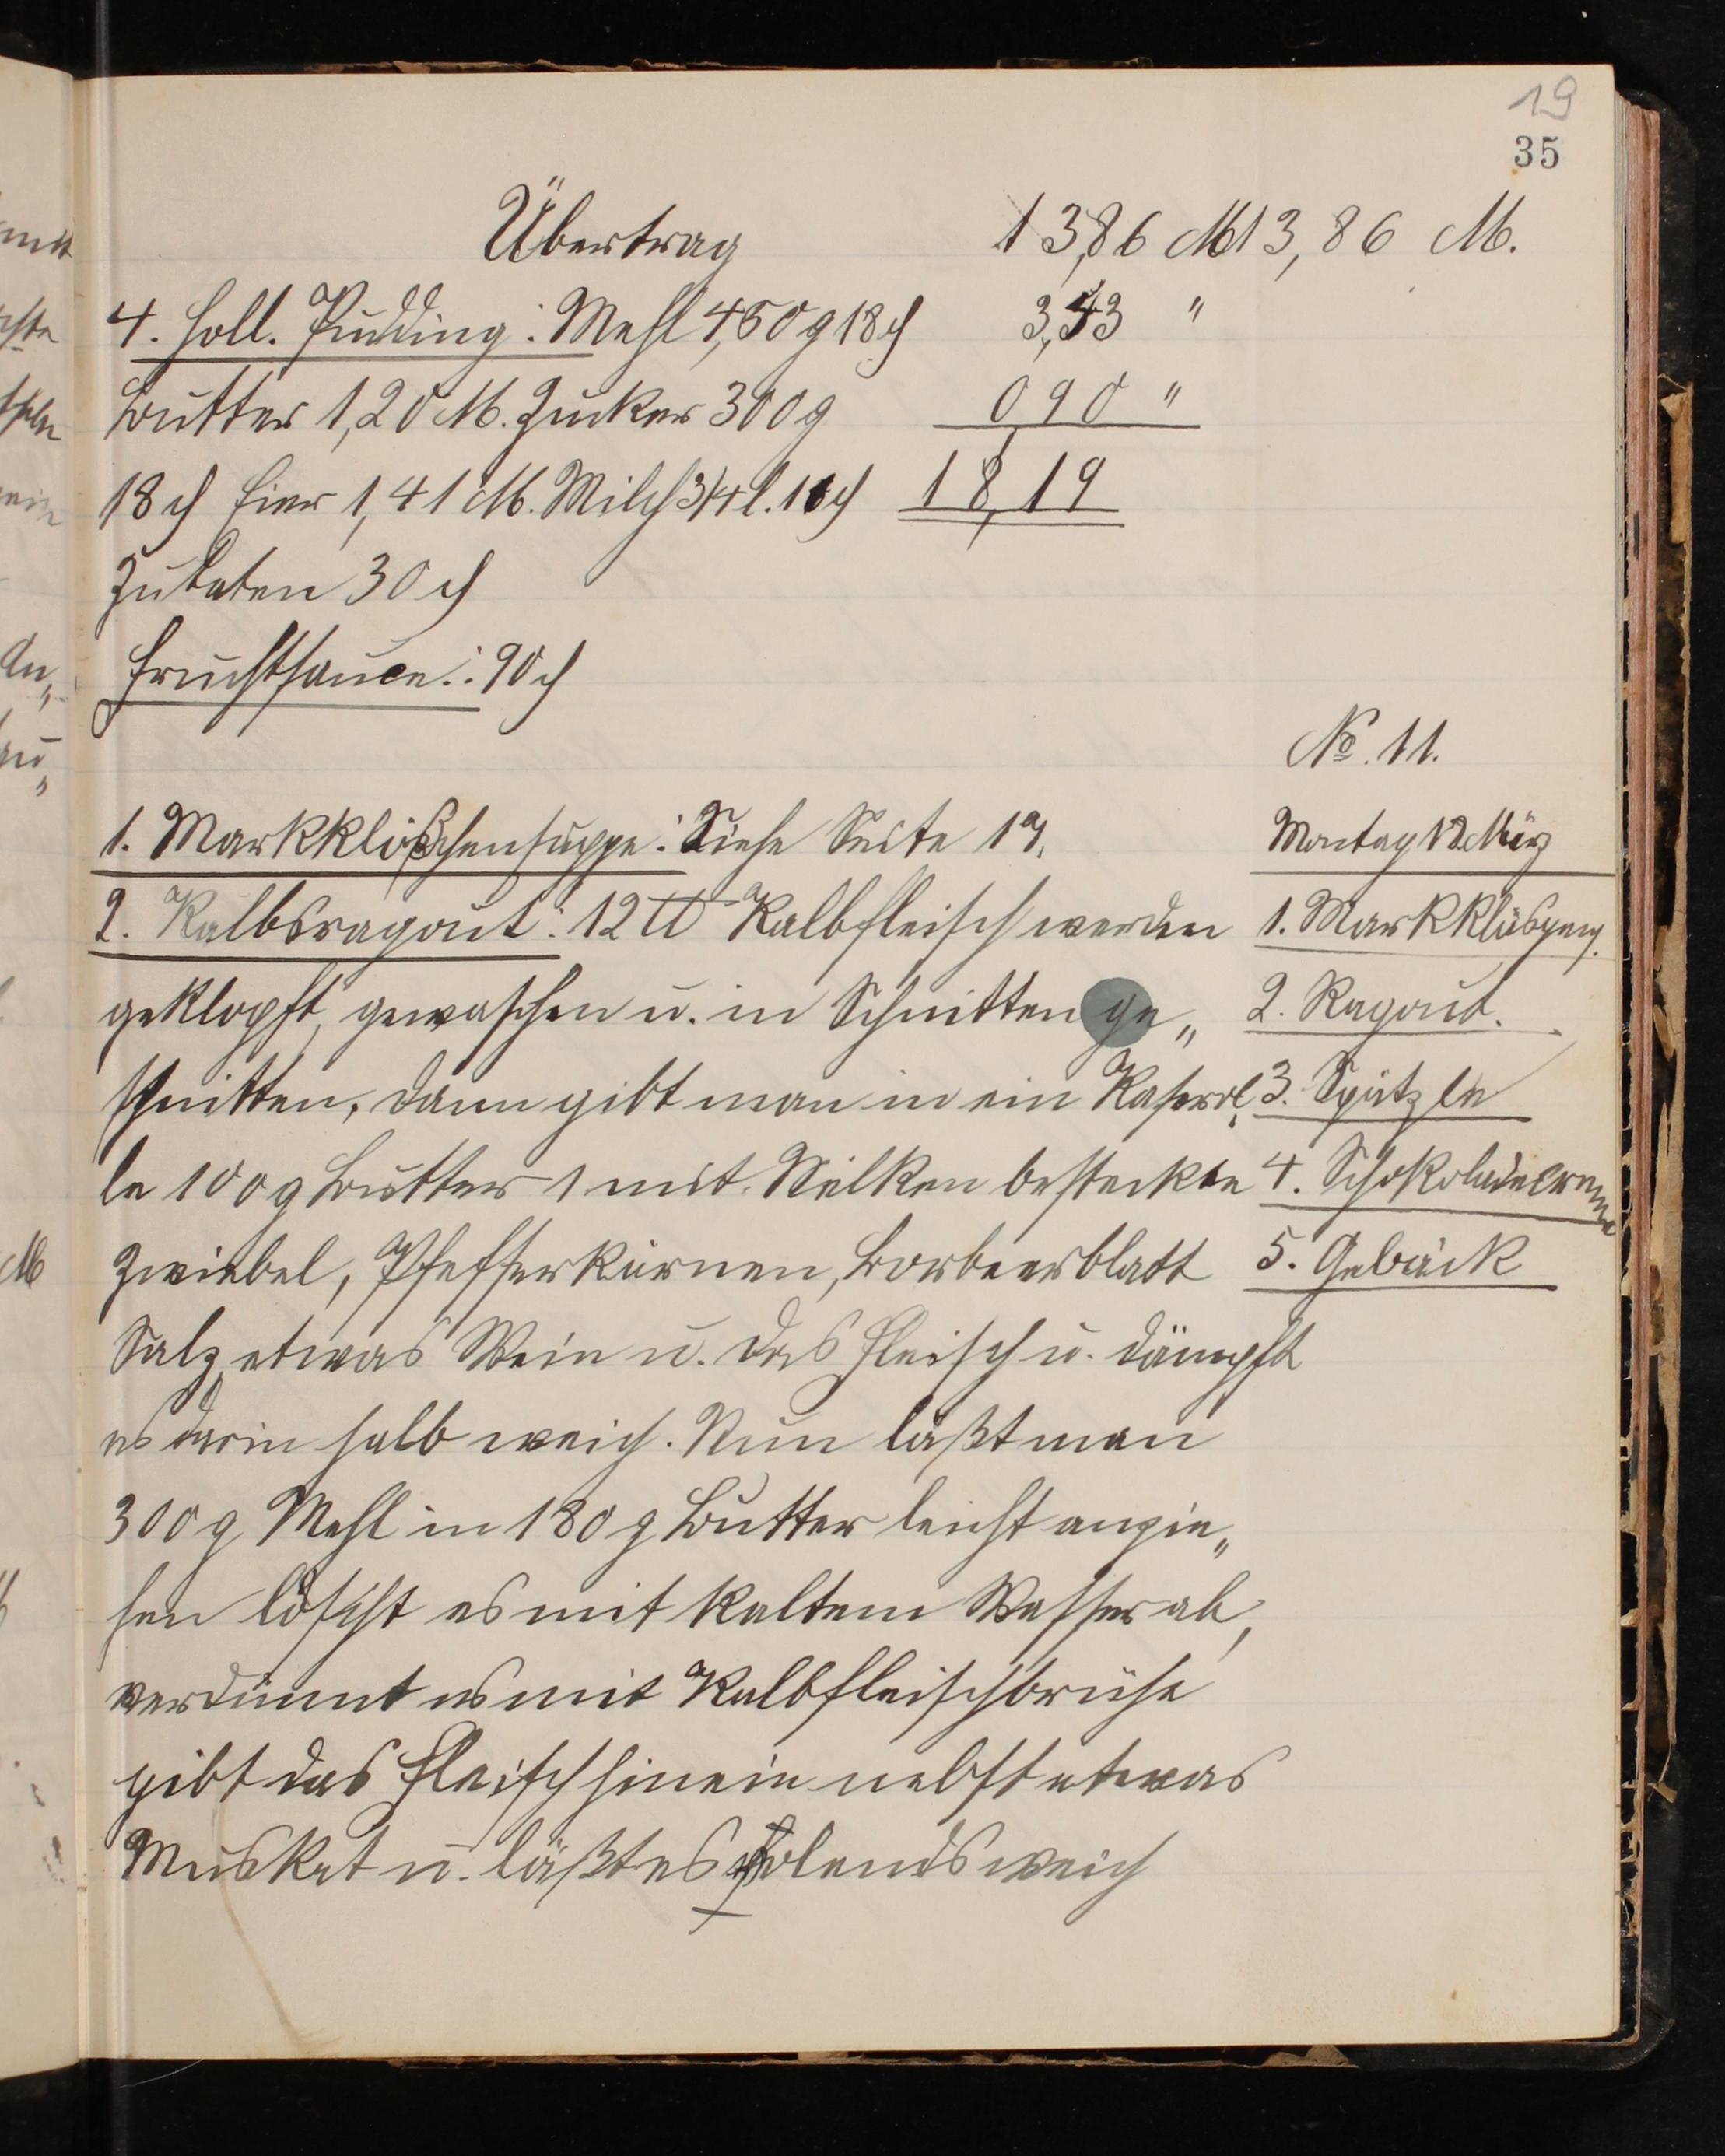 19
35
Übertrag 13,86 M 13,86 M.
4. Holl. Pudding: Mehl 450 g 18 ₰ 3,43 "
Butter 1,20 M. Zucker 300 g 0,90 "
18 ₰ Eier 1,41 M. Milch 3/4 l. 16 ₰ 18,19
Zutaten 30 ₰
Fruchtsauce.: 90 ₰
№. 11.
1. Markklößchensuppe: Siehe Seite 19.
Montag 12. März
2. Kalbsragout: 12 ℔ Kalbfleisch werden
1. Markklösp
geklopft, gewaschen u. in Schnitten ge„
2. Ragout.
schnitten, dann gibt man in ein Kaserol„
3. Spätzle
le 100 g Butter 1 mit Nelken besteckte
4. Schokoladecreme
Zwiebel, Pfefferkörner, Lorbeerblatt
5. Gebäck
Salz, etwas Wein u. das Fleisch u. dämpft
es darin halb weich. Nun läßt man
300 g Mehl in 180 g Butter leicht anzie„
hen löscht es mit kaltem Wasser ab,
verdünnt es mit Kalbfleischbrühe
gibt das Fleisch hinein nebst etwas
Muskat u. läßt es volends weich